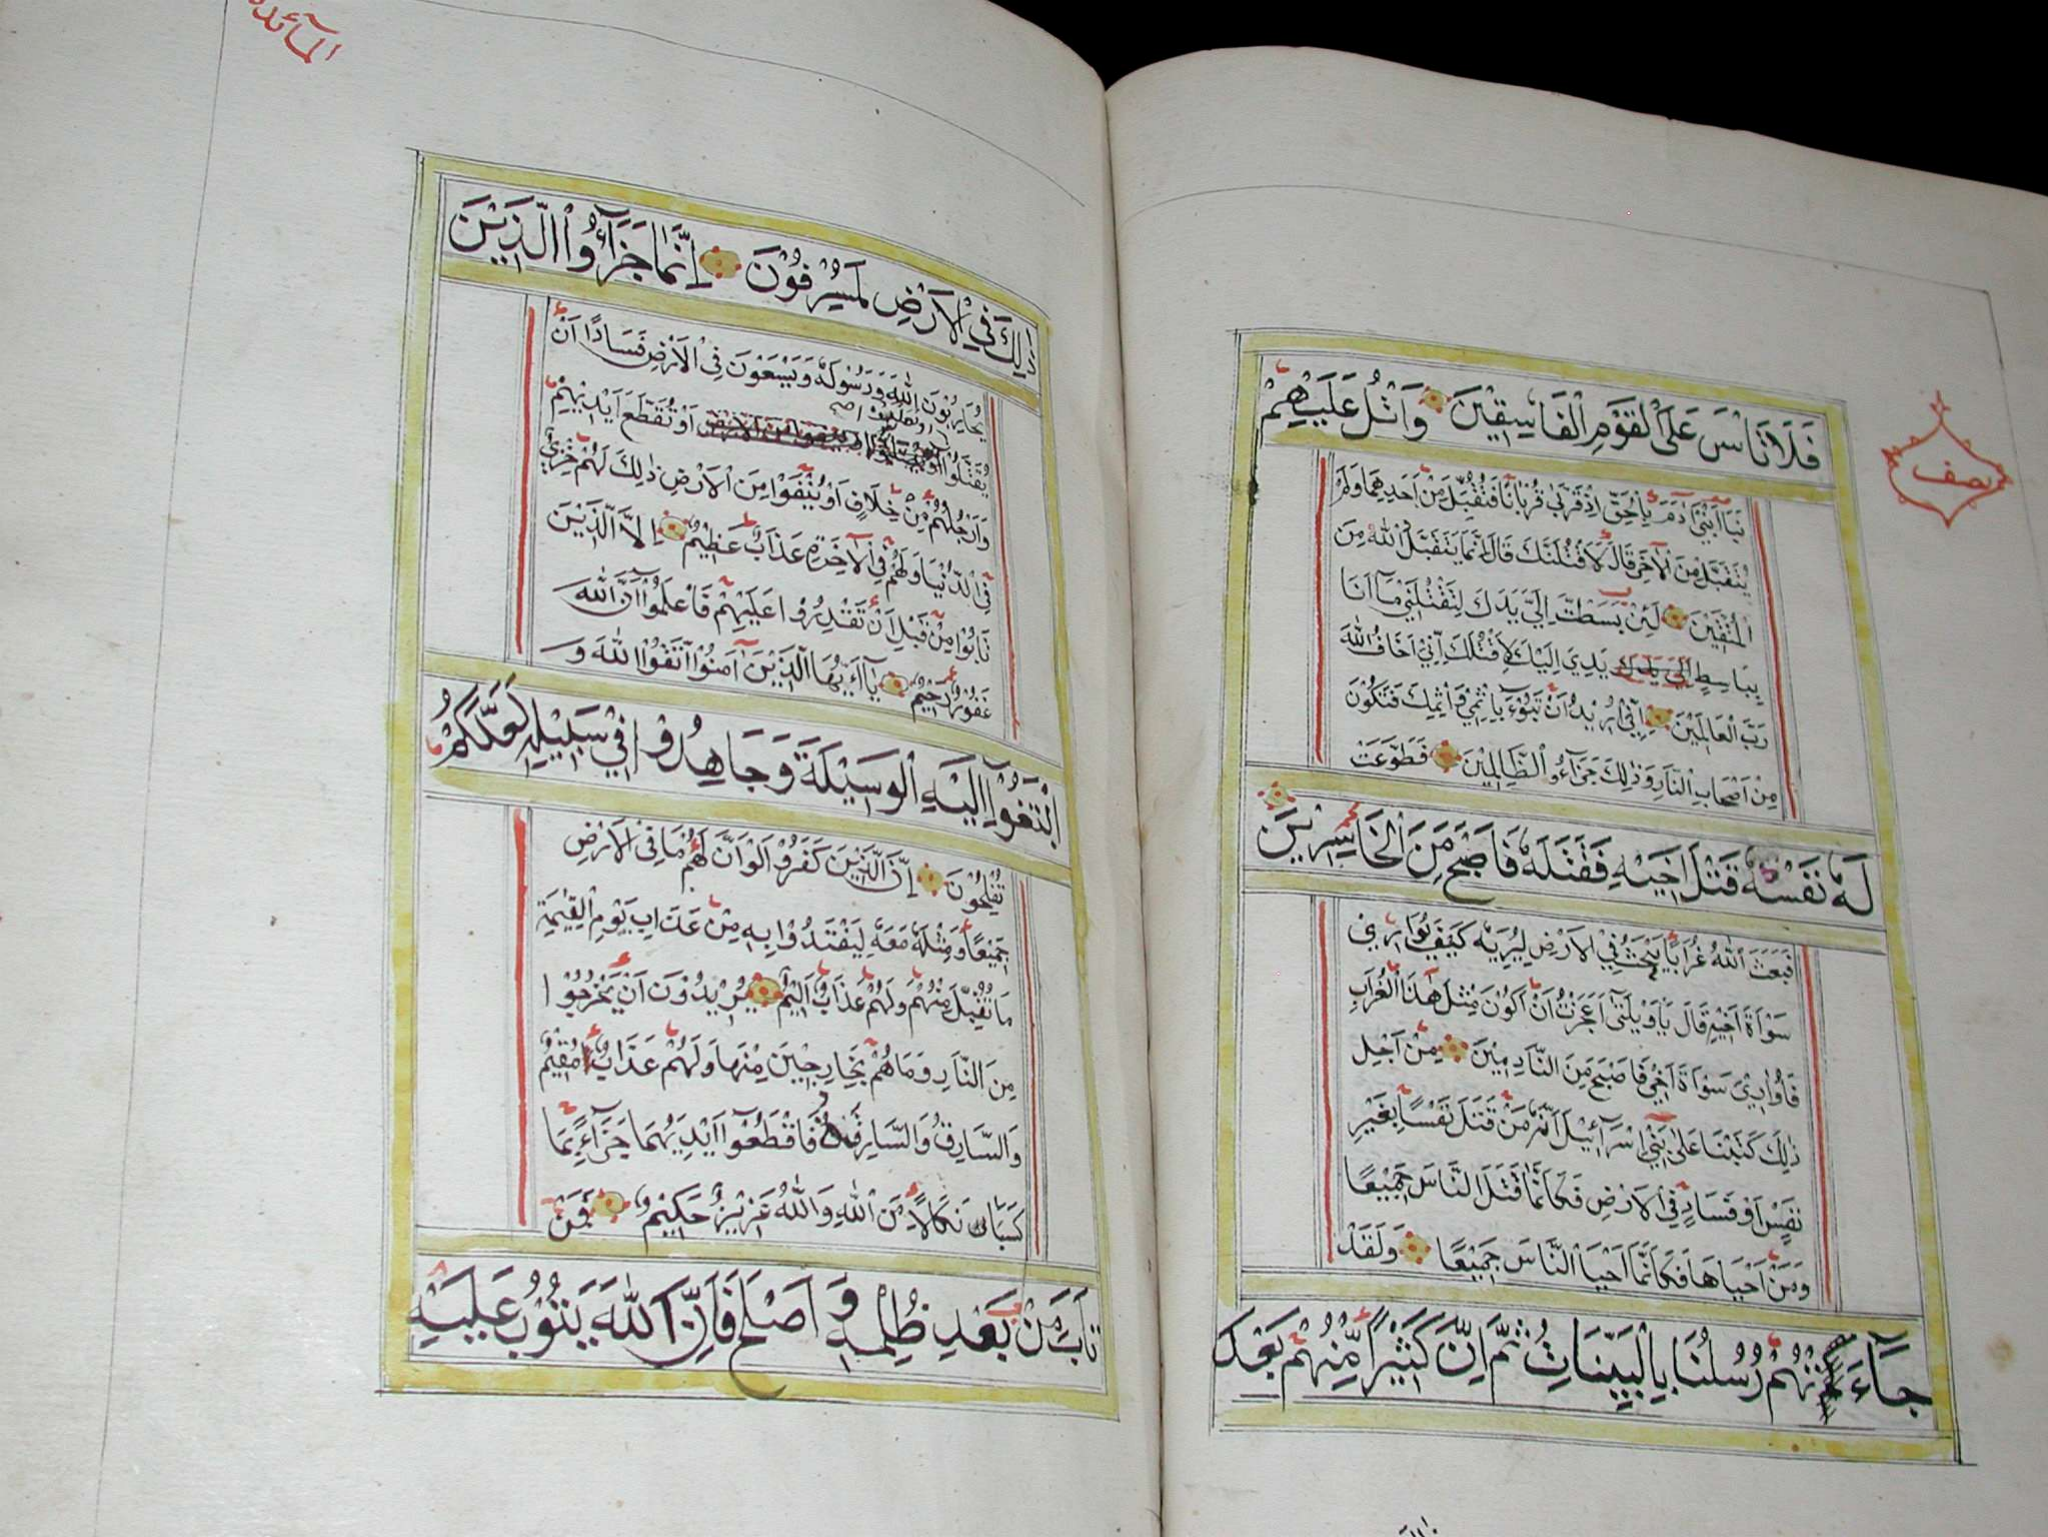 نصف
فَلَا تَاْسَ عَلَى الْقَوْمِ الْفَاسِقِيْنَ وَاتْلُ عَلَيْهِمْ
نَبَاَ ابْنَيْ اٰدَمَ بِالْحَقِّ اِذْ قَرَّبَا قُرْبَانًا فَتُقُبِّلَ مِنْ اَحَدِهِمَا وَلَمْ
يُتَقَبَّلْ مِنَ الْاٰخَرِ قَالَ لَاَقْتُلَنَّكَ قَالَ اِنَّمَا يَتَقَبَّلُ اللّٰهُ مِنَ
الْمُتَّقِيْنَ لَئِنْ بَسَطْتَّ اِلَيَّ يَدَكَ لِتَقْتُلَنِيْ مَآ اَنَا
بِبَاسِطٍ اِلَيَّ يَدَكَ يَدِيَ اِلَيْكَ لِاَقْتُلَكَ اِنِّيْ اَخَافُ اللّٰهَ
رَبَّ الْعَالَمِيْنَ اِنِّيْ اُرِيْدُ اَنْ تَبُوْٓءَ بِاِثْمِيْ وَاِثْمِكَ فَتَكُوْنَ
مِنْ اَصْحَابِ النَّارِ وَذٰلِكَ جَزَآءُو الظَّالِمِيْنَ فَطَوَّعَتْ
لَهٗ نَفْسُهٗ قَتْلَ اَخِيْهِ فَقَتَلَهٗ فَاَصْبَحَ مِنَ الْخَاسِرِيْنَ
فَبَعَثَ اللّٰهُ غُرَابًا يَبْحَثُ فِي الْاَرْضِ لِيُرِيَهٗ كَيْفَ يُوَارِيْ
سَوْاَةَ اَخِيْهِ قَالَ يَا وَيْلَتٰى اَعَجَزْتُ اَنْ اَكُوْنَ مِثْلَ هٰذَا الْغُرَابِ
فَاُوَارِيَ سَوْاَةَ اَخِيْ فَاَصْبَحَ مِنَ النَّادِمِيْنَ مِنْ اَجْلِ
ذٰلِكَ كَتَبْنَا عَلٰى بَنِيْٓ اِسْرَآئِيْلَ اَنَّهٗ مَنْ قَتَلَ نَفْسًا بِغَيْرِ
نَفْسٍ اَوْ فَسَادٍ فِي الْاَرْضِ فَكَاَنَّمَا قَتَلَ النَّاسَ جَمِيْعًا
وَمَنْ اَحْيَاهَا فَكَاَنَّمَا اَحْيَا النَّاسَ جَمِيْعًا وَلَقَدْ
جَآءَتْهُمْ رُسُلُنَا بِالْبَيِّنَاتِ ثُمَّ اِنَّ كَثِيْرًا مِّنْهُمْ بَعْدَ
المائدة
ذٰلِكَ فِي الْاَرْضِ لَمُسْرِفُوْنَ اِنَّمَا جَزَآءُوا الَّذِيْنَ
يُحَارِبُوْنَ اللّٰهَ وَرَسُوْلَهٗ وَيَسْعَوْنَ فِي الْاَرْضِ فَسَادًا اَنْ
يُقَتَّلُوْٓا اَوْ يُصَلَّبُوْٓا اَوْ تُقَطَّعَ اَيْدِيْهِمْ
وَاَرْجُلُهُمْ مِنْ خِلَافٍ اَوْ يُنْفَوْا مِنَ الْاَرْضِ ذٰلِكَ لَهُمْ خِزْيٌ
فِي الدُّنْيَا وَلَهُمْ فِي الْاٰخِرَةِ عَذَابٌ عَظِيْمٌ اِلَّا الَّذِيْنَ
تَابُوْا مِنْ قَبْلِ اَنْ تَقْدِرُوْا عَلَيْهِمْ فَاعْلَمُوْٓا اَنَّ اللّٰهَ
غَفُوْرٌ رَحِيْمٌ يَآ اَيُّهَا الَّذِيْنَ اٰمَنُوا اتَّقُوا اللّٰهَ وَ
ابْتَغُوْٓا اِلَيْهِ الْوَسِيْلَةَ وَجَاهِدُوْا فِيْ سَبِيْلِهٖ لَعَلَّكُمْ
تُفْلِحُوْنَ اِنَّ الَّذِيْنَ كَفَرُوْا لَوْ اَنَّ لَهُمْ مَا فِي الْاَرْضِ
جَمِيْعًا وَمِثْلَهٗ مَعَهٗ لِيَفْتَدُوْا بِهٖ مِنْ عَذَابِ يَوْمِ الْقِيٰمَةِ
مَا تُقُبِّلَ مِنْهُمْ وَلَهُمْ عَذَابٌ اَلِيْمٌ يُرِيْدُوْنَ اَنْ يَخْرُجُوْا
مِنَ النَّارِ وَمَا هُمْ بِخَارِجِيْنَ مِنْهَا وَلَهُمْ عَذَابٌ مُقِيْمٌ
وَالسَّارِقُ وَالسَّارِقَةُ فَاقْطَعُوْٓا اَيْدِيَهُمَا جَزَآءً بِمَا
كَسَبَا نَكَالًا مِنَ اللّٰهِ وَاللّٰهُ عَزِيْزٌ حَكِيْمٌ فَمَنْ
تَابَ مِنْ بَعْدِ ظُلْمِهٖ وَاَصْلَحَ فَاِنَّ اللّٰهَ يَتُوْبُ عَلَيْهِ